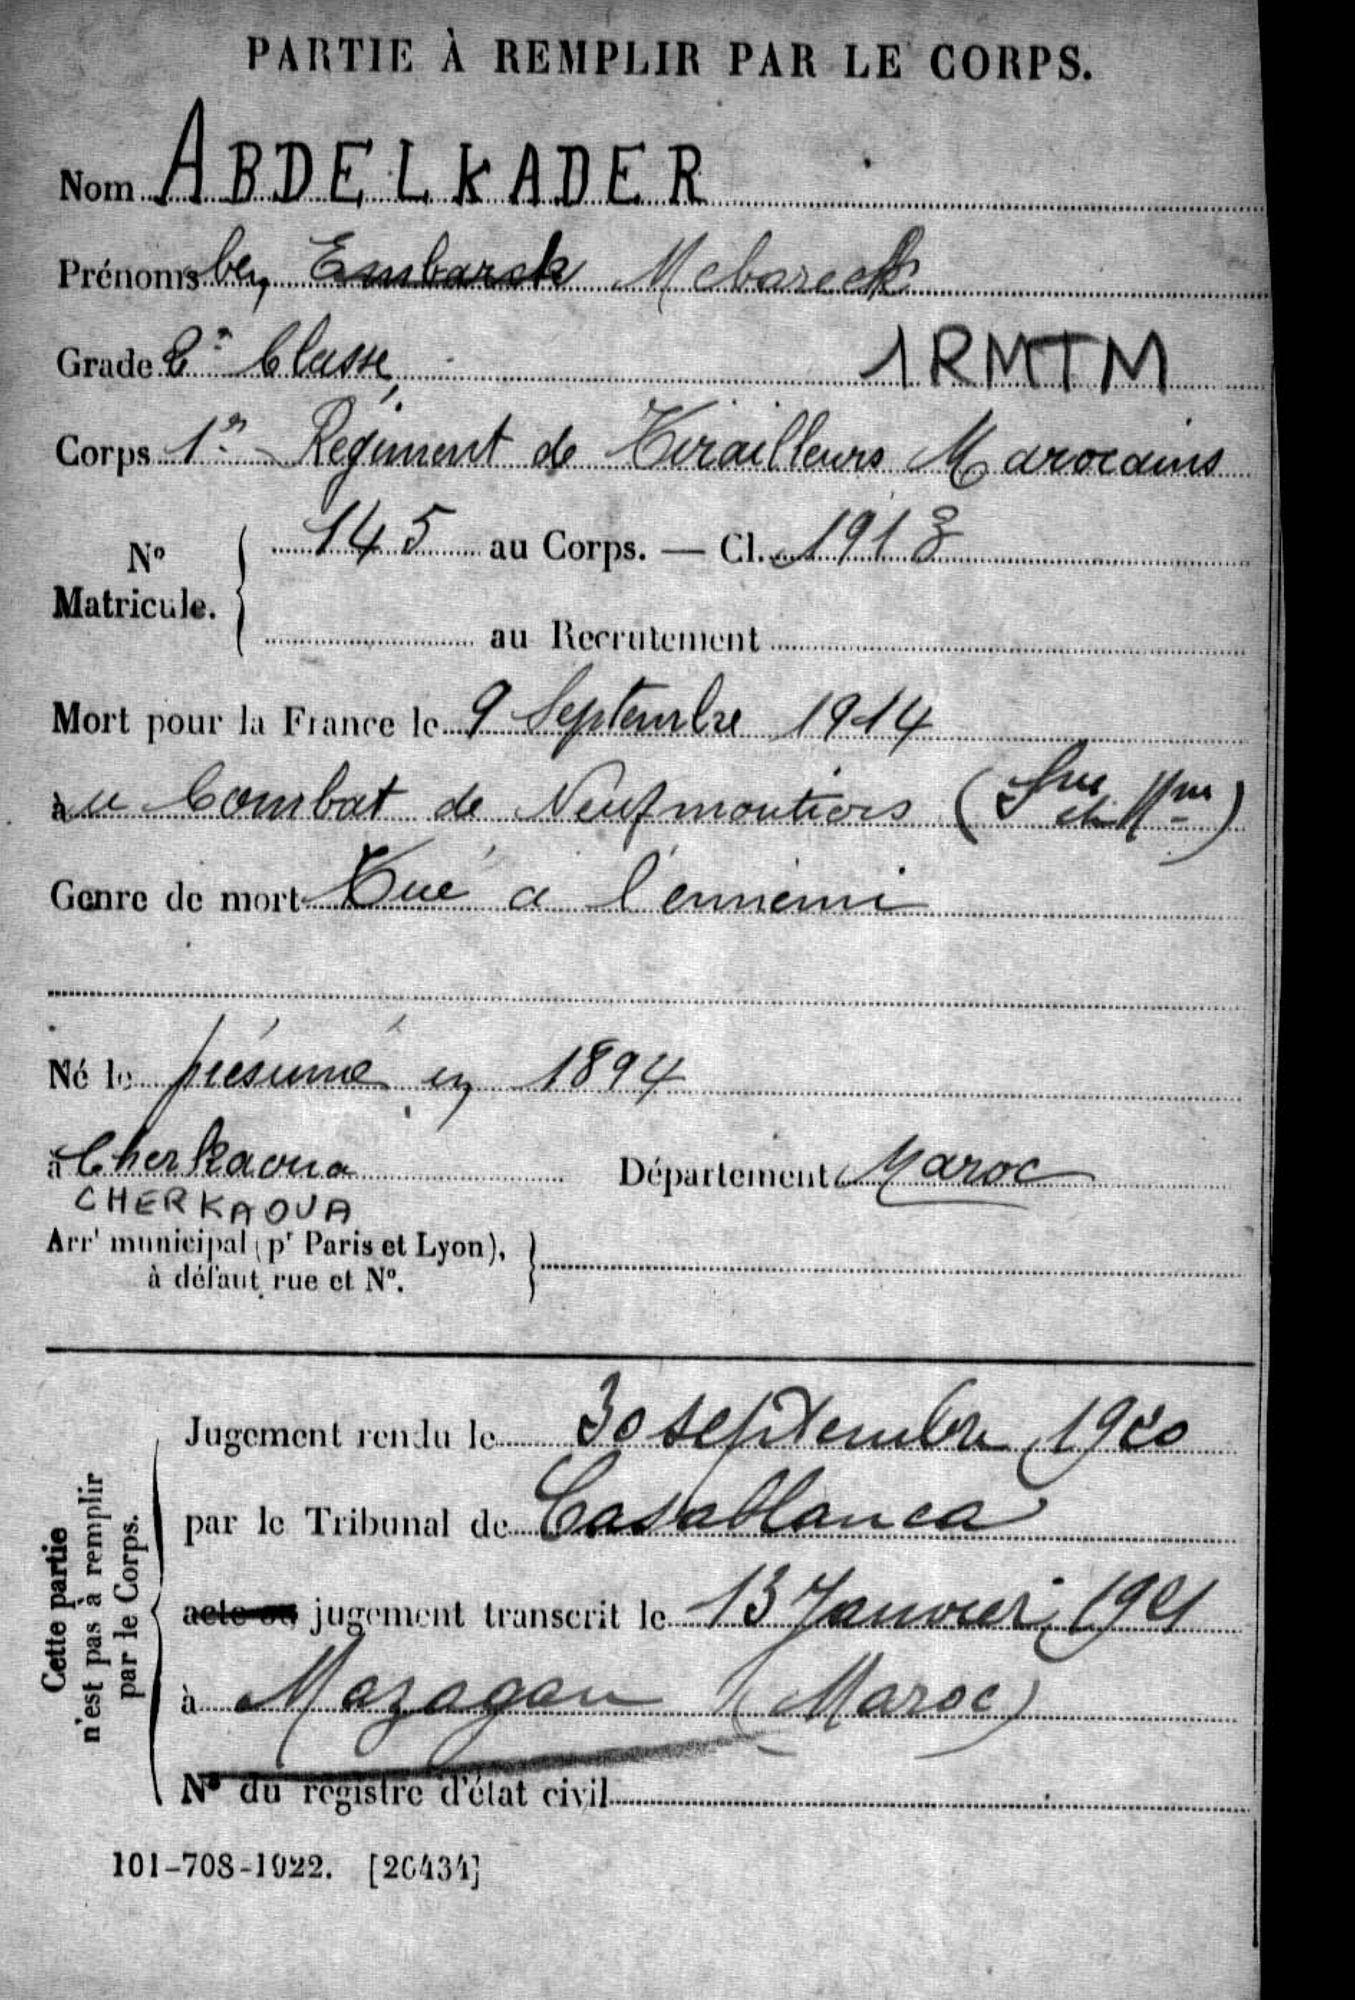 PARTIE À REMPLIR PAR LE CORPS.
Nom ABDELKADER
Prénoms ben Embarek Mebareck
Grade 2e Classe
1RMTM
Corps 1er Régiment de Tirailleurs Marocains
No Matricule. 145 au Corps. — Cl. 1913
au Recrutement
Mort pour la France le 9 Septembre 1914
au Combat de Neufmoutiers (Sne et Mne)
Genre de mort Tué à l'ennemi
Né le présumé en 1894
à Cherkaoua Département Maroc
CHERKAOUA
Arrt municipal (pr Paris et Lyon),
à défaut rue et No.
Cette partie
n'est pas à remplir
par le Corps.
Jugement rendu le 30 septembre 1920
par le Tribunal de Casablanca
acte ou jugement transcrit le 13 Janvier 1921
à Mazagan (Maroc)
No du registre d'état civil
101-708-1922. [26434]